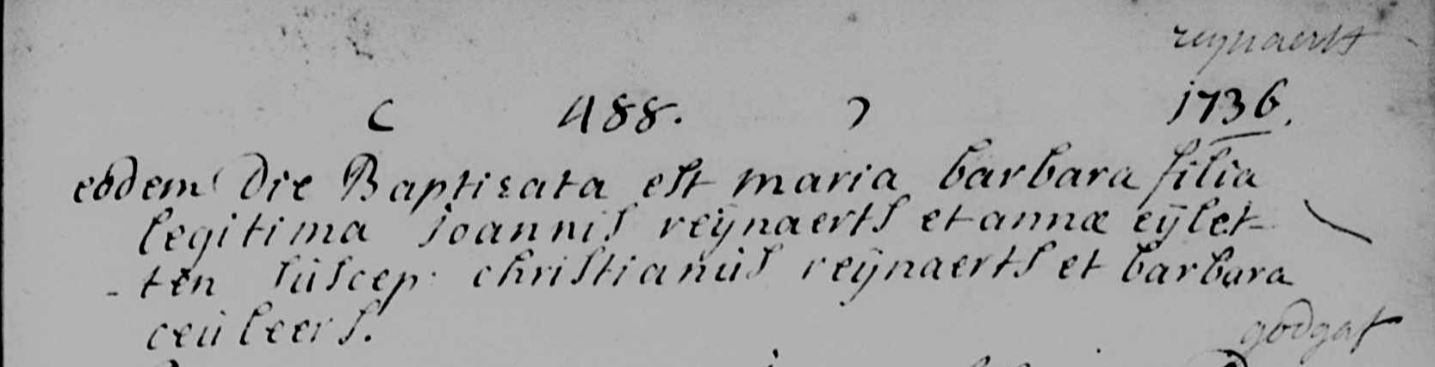 reynaerts
( 488. ) 1736.
eodem Die Baptisata est maria barbara filia
legitima joannis reÿnaerts et annæ eÿlet-
-ten sùscep: christianùs reÿnaerts et barbara
ceùleers.
godgaf